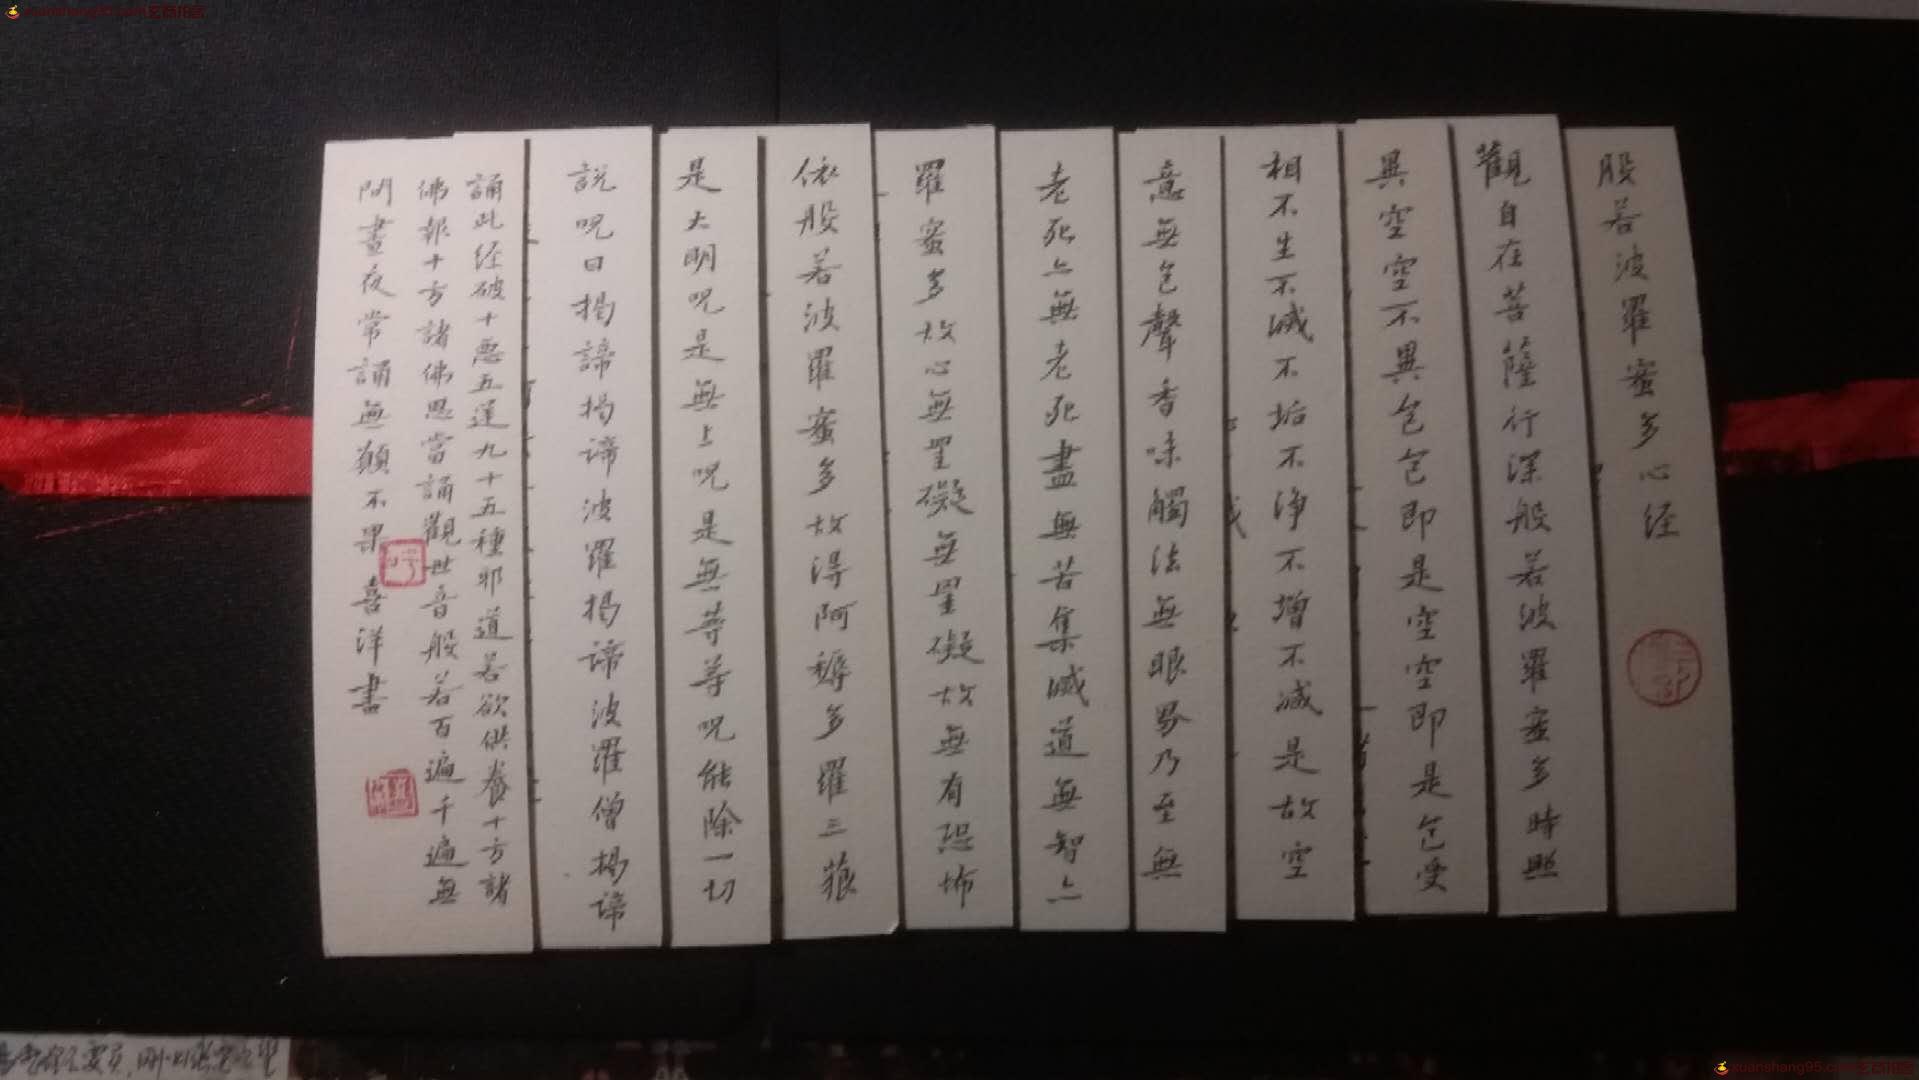 般若波羅蜜多心经
觀自在菩薩行深般若波羅蜜多時照
異空空不異色色即是空空即是色受
相不生不滅不垢不淨不增不減是故空
意無色聲香味觸法無眼界乃至無
老死亦無老死盡無苦集滅道無智亦
羅蜜多故心無罣礙無罣礙故無有恐怖
依般若波羅蜜多故得阿耨多羅三藐
是大明呪是無上呪是無等等呪能除一切
説呪曰揭諦揭諦波羅揭諦波羅僧揭諦
誦此经破十惡五逆九十五種邪道若欲供養十方諸
佛報十方諸佛恩當誦觀世音般若百遍千遍無
間晝夜常誦無願不果 喜洋書
xuanshang95.com
xuanshang95.com